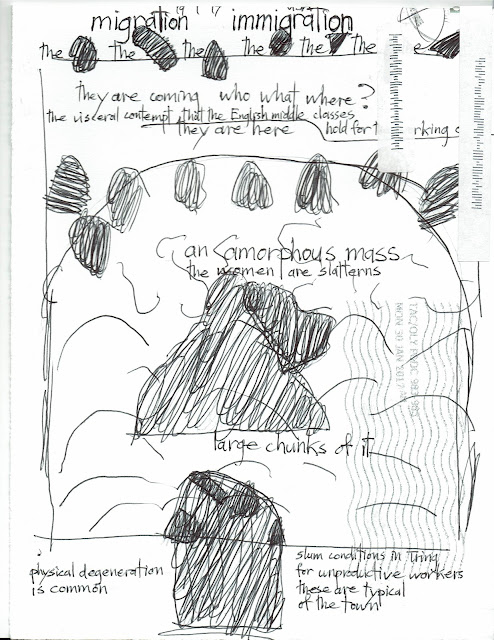 19 1 17
migration immigration
the the the the the the
they are coming who what where?
the visceral contempt that the English middle classes
they are here hold for
an amorphous mass
the women are slatterns
TACOLY PDC 983 985
MON 30 JAN 2017
large chunks of it
physical degeneration
is common
slum conditions in Tring
for unproductive workers
these are typical
of the town